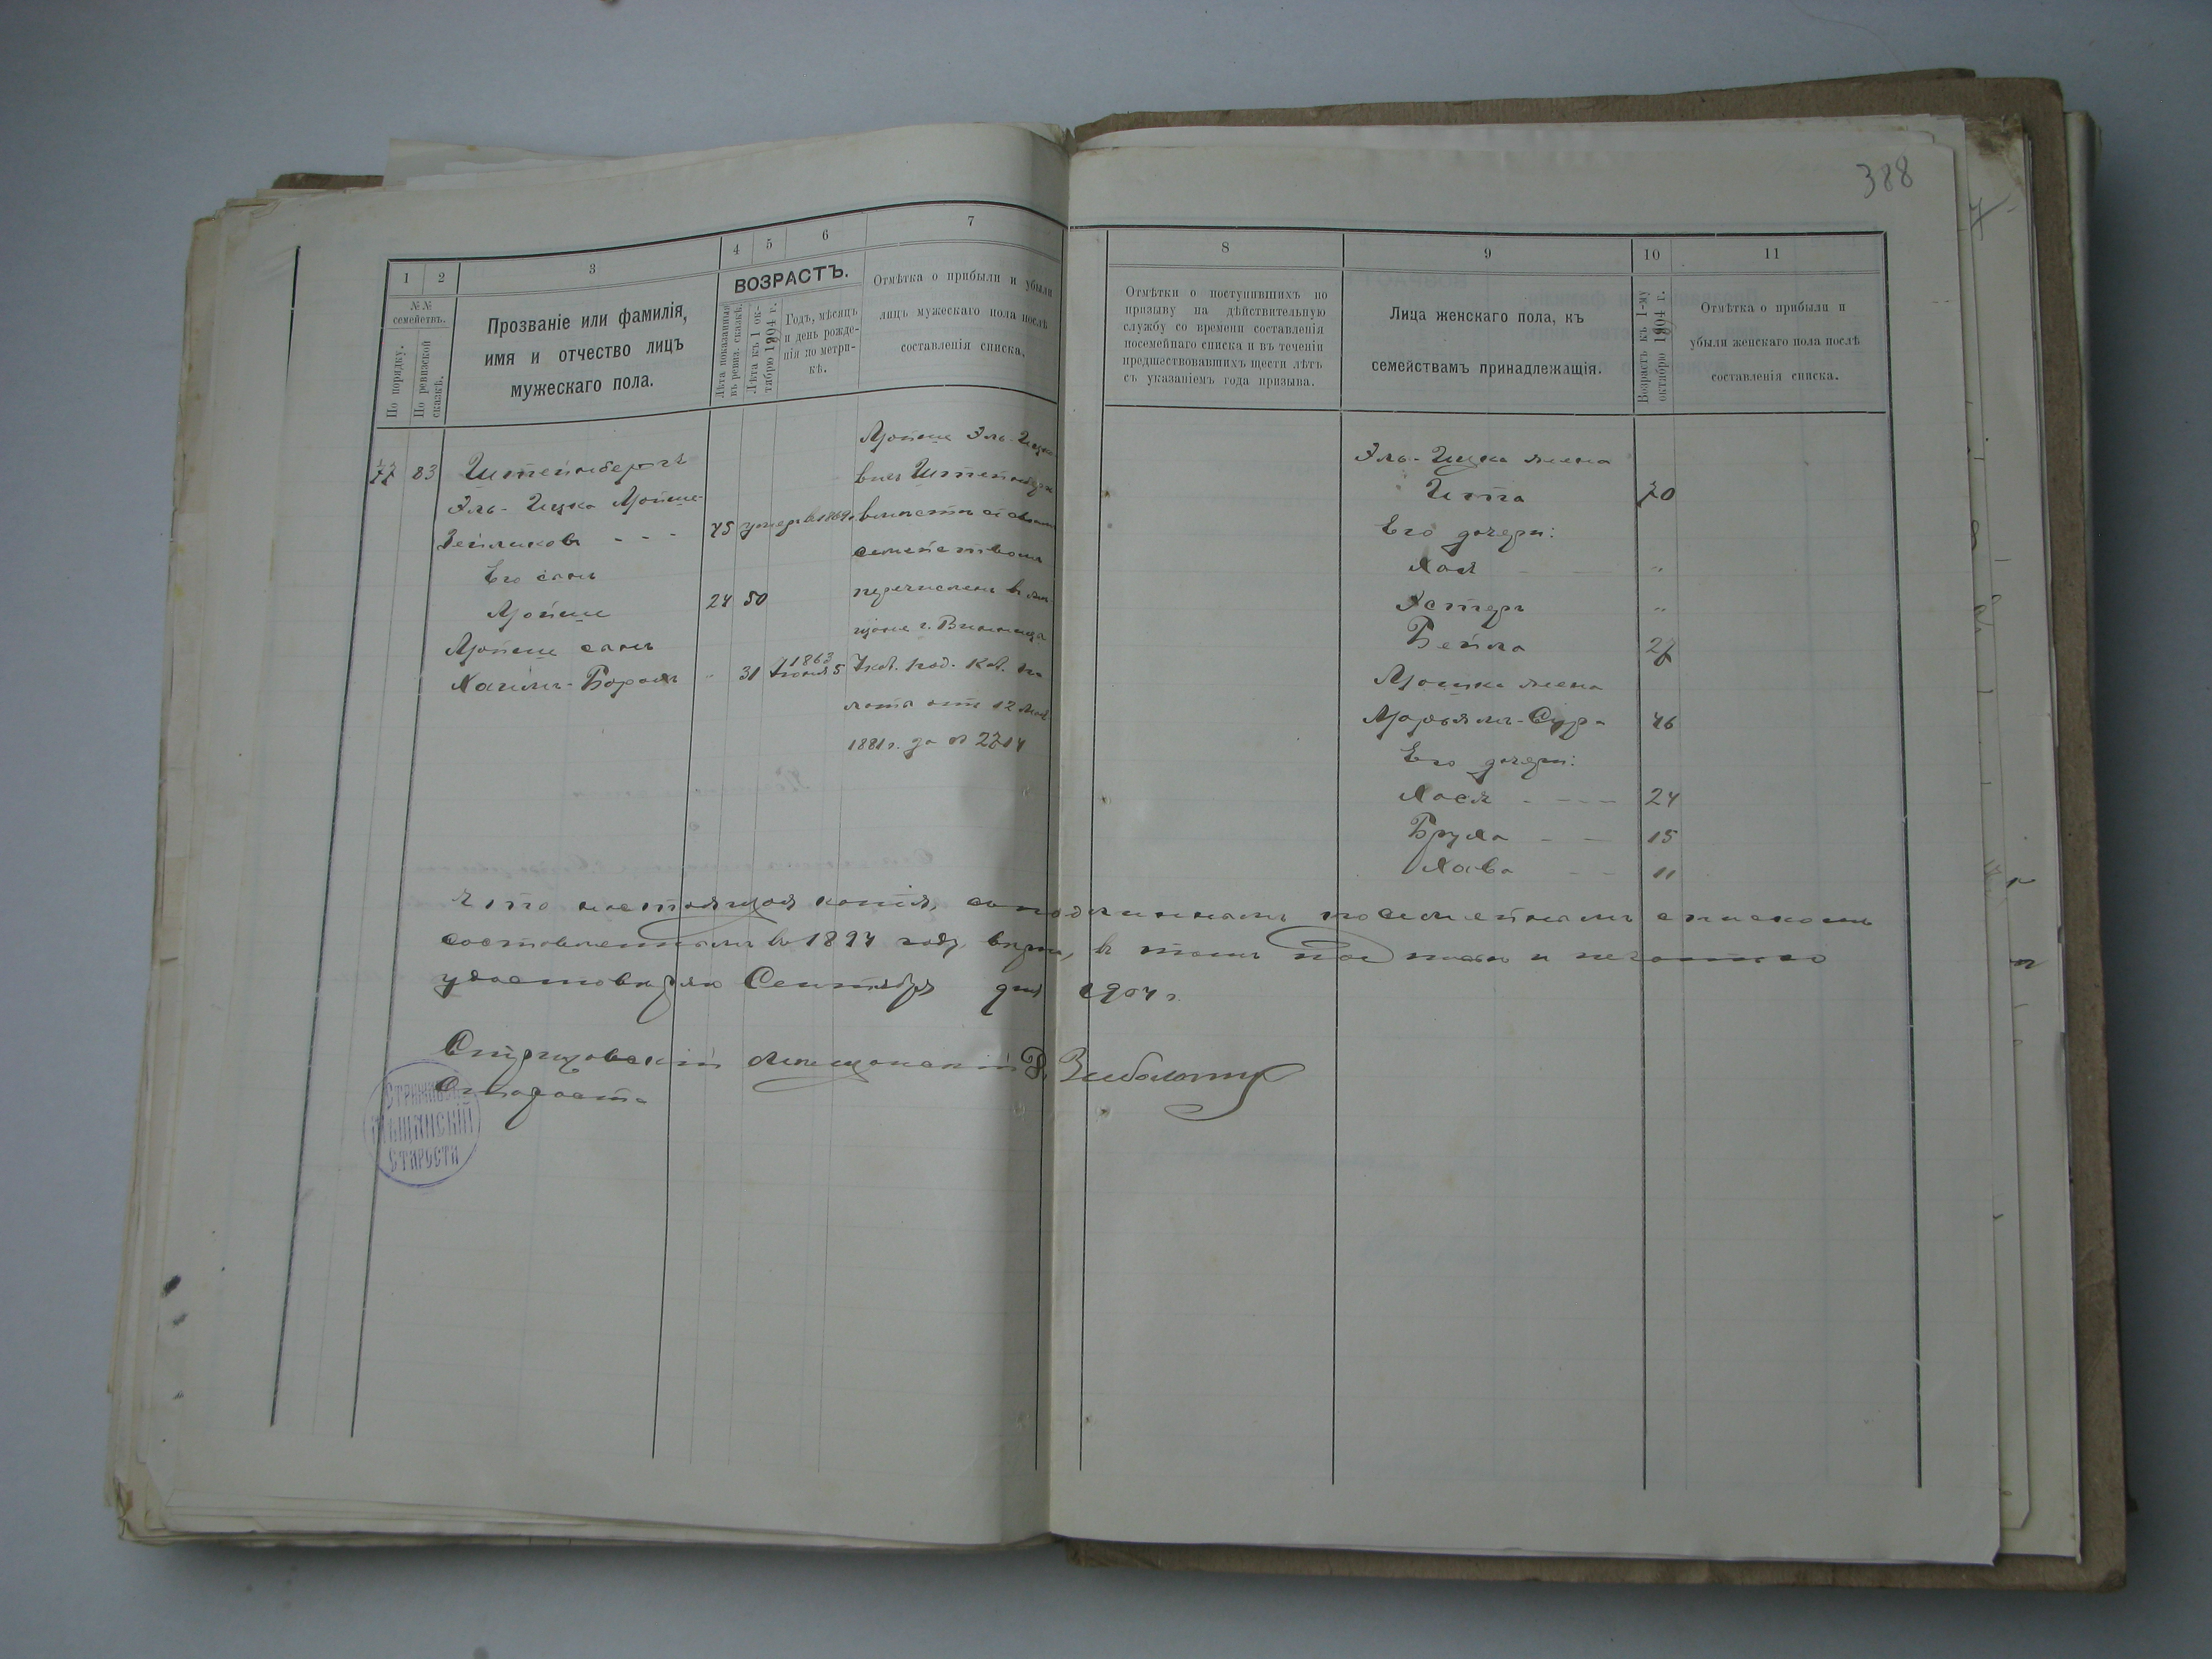 388
1
2
3
4
5
6
7
№№ семействъ.
По порядку.
По ревизской сказкѣ.
Прозваніе или фамилія,
имя и отчество лицъ
мужескаго пола.
ВОЗРАСТЪ.
Лѣта показанныя
въ ревиз. сказкѣ.
Лѣта къ 1 ок-
тябрю 1904 г.
Годъ, мѣсяцъ
и день рожде-
нія по метри-
кѣ.
Отмѣтка о прибыли и убыли
лицъ мужескаго пола послѣ
составленія списка.
77 83 Штейнбергъ
Эль-Ицко Мойше-
Зейликовъ - - - 45 умеръ в 1864
Его сынъ
Мойше 24 50
Мойше сынъ
Хаимъ-Борохъ " 31 1863 Іюня 5
Мойше Эль-Ицко
вичъ Штейнбергъ
вмѣстѣ съ своимъ
семействомъ
перечисленъ в
г. Винница
Указ. Под. Каз. Па
латы отъ 12
1881 г. за № 2714
8
9
10
11
Отмѣтки о поступившихъ по
призыву на дѣйствительную
службу со времени составленія
посемейнаго списка и въ теченіи
предшествовавшихъ шести лѣтъ
съ указаніемъ года призыва.
Лица женскаго пола, къ
семействамъ принадлежащія.
Возрастъ къ 1-му
октябрю 1904 г.
Отмѣтка о прибыли и
убыли женскаго пола послѣ
составленія списка.
Эль-Ицка жена
Ита 70
Его дочери:
Хая "
Эстеръ "
Бейла 27
Мошка жена
Марьямъ-Сура 46
Его дочери:
Хася - - - 24
Бруха - - 15
Хава - - 11
Что настоящая копія, съ подлиннымъ посемейнымъ спискомъ
составленнымъ въ 1894 году, вѣрна, въ томъ подписью и печатью
удостовѣряю Сентября дня 1904 г.
Стрижовскій Мѣщанскій
Староста
СТРИЖАВСК
МѢЩАНСКІЙ
СТАРОСТА